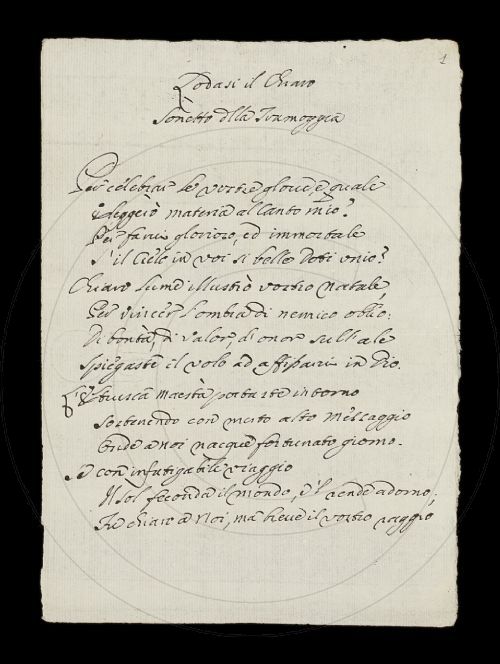 1
Lodasi il Chiaro
Sonetto della Tramoggia
Per celebrar le vostre glorie, e quale
Eleggerò materia al Canto mio?
Per farvi glorioso, ed immortale
S'il Cielo in voi sì belle Doti unio?
Chiaro lume illustrò vostro natale,
Per vincer l'ombra di nemico oblio;
Di bontà, di valor, d'onor sull'ale
Spiegaste il volo ad affissarvi in Dio.
Etrusca maestà portaste intorno
Sostenendo con merto alto Messaggio
Onde a noi nacque fortunato giorno.
Se con infatigabile viaggio
Il sol feconda il mondo, e'l rende adorno;
Fu chiaro a Noi, ma breve il vostro raggio